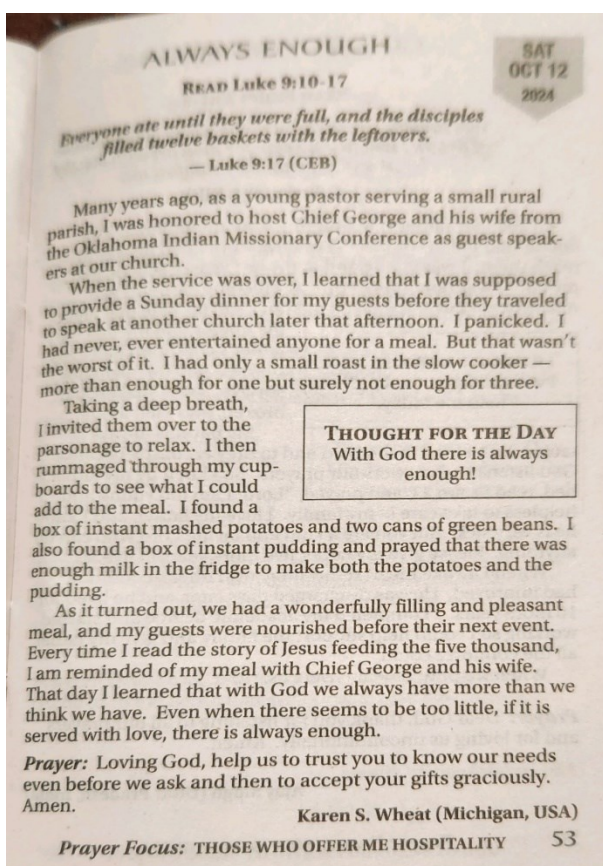 ALWAYS ENOUGH
SAT
OCT 12
2024
READ Luke 9:10-17
Everyone ate until they were full, and the disciples
filled twelve baskets with the leftovers.
— Luke 9:17 (CEB)
Many years ago, as a young pastor serving a small rural
parish, I was honored to host Chief George and his wife from
the Oklahoma Indian Missionary Conference as guest speak-
ers at our church.
When the service was over, I learned that I was supposed
to provide a Sunday dinner for my guests before they traveled
to speak at another church later that afternoon. I panicked. I
had never, ever entertained anyone for a meal. But that wasn't
the worst of it. I had only a small roast in the slow cooker —
more than enough for one but surely not enough for three.
Taking a deep breath,
I invited them over to the
parsonage to relax. I then
rummaged through my cup-
boards to see what I could
add to the meal. I found a
THOUGHT FOR THE DAY
With God there is always
enough!
box of instant mashed potatoes and two cans of green beans. I
also found a box of instant pudding and prayed that there was
enough milk in the fridge to make both the potatoes and the
pudding.
As it turned out, we had a wonderfully filling and pleasant
meal, and my guests were nourished before their next event.
Every time I read the story of Jesus feeding the five thousand,
I am reminded of my meal with Chief George and his wife.
That day I learned that with God we always have more than we
think we have. Even when there seems to be too little, if it is
served with love, there is always enough.
Prayer: Loving God, help us to trust you to know our needs
even before we ask and then to accept your gifts graciously.
Amen.
Karen S. Wheat (Michigan, USA)
Prayer Focus: THOSE WHO OFFER ME HOSPITALITY 53